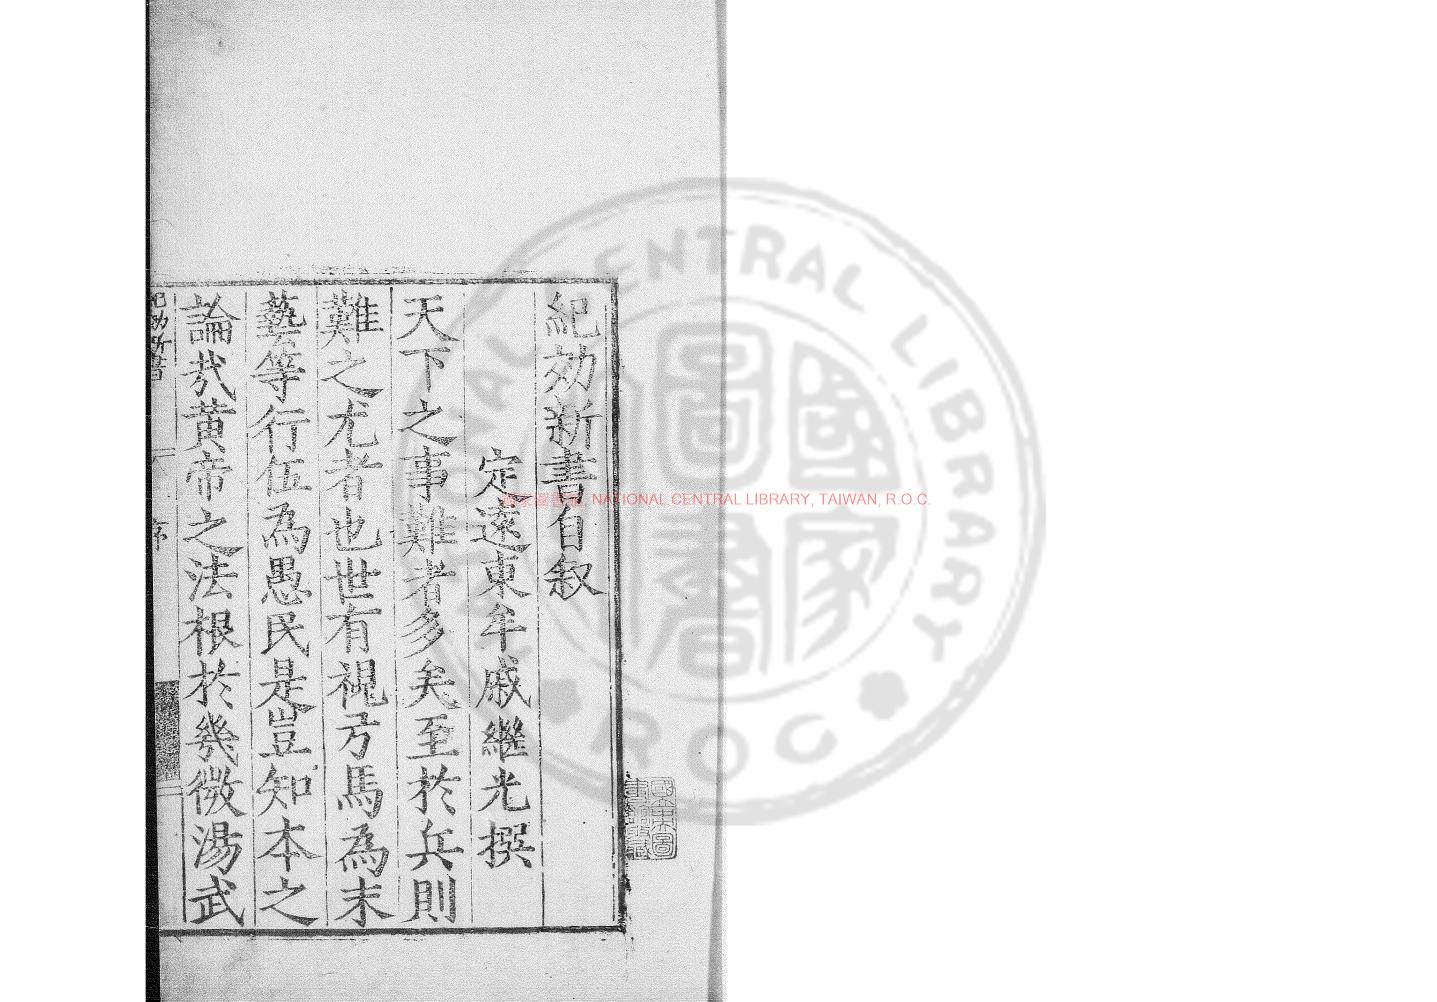 紀効新書自叙
定遠東牟戚繼光撰
天下之事難者多矣至於兵則
難之尤者也世有視弓馬為末
藝等行伍為愚民是豈知本之
論哉黃帝之法根於幾微湯武
序
NATIONAL CENTRAL LIBRARY
R O C
國家圖書館
國家圖書館 NATIONAL CENTRAL LIBRARY, TAIWAN, R.O.C.